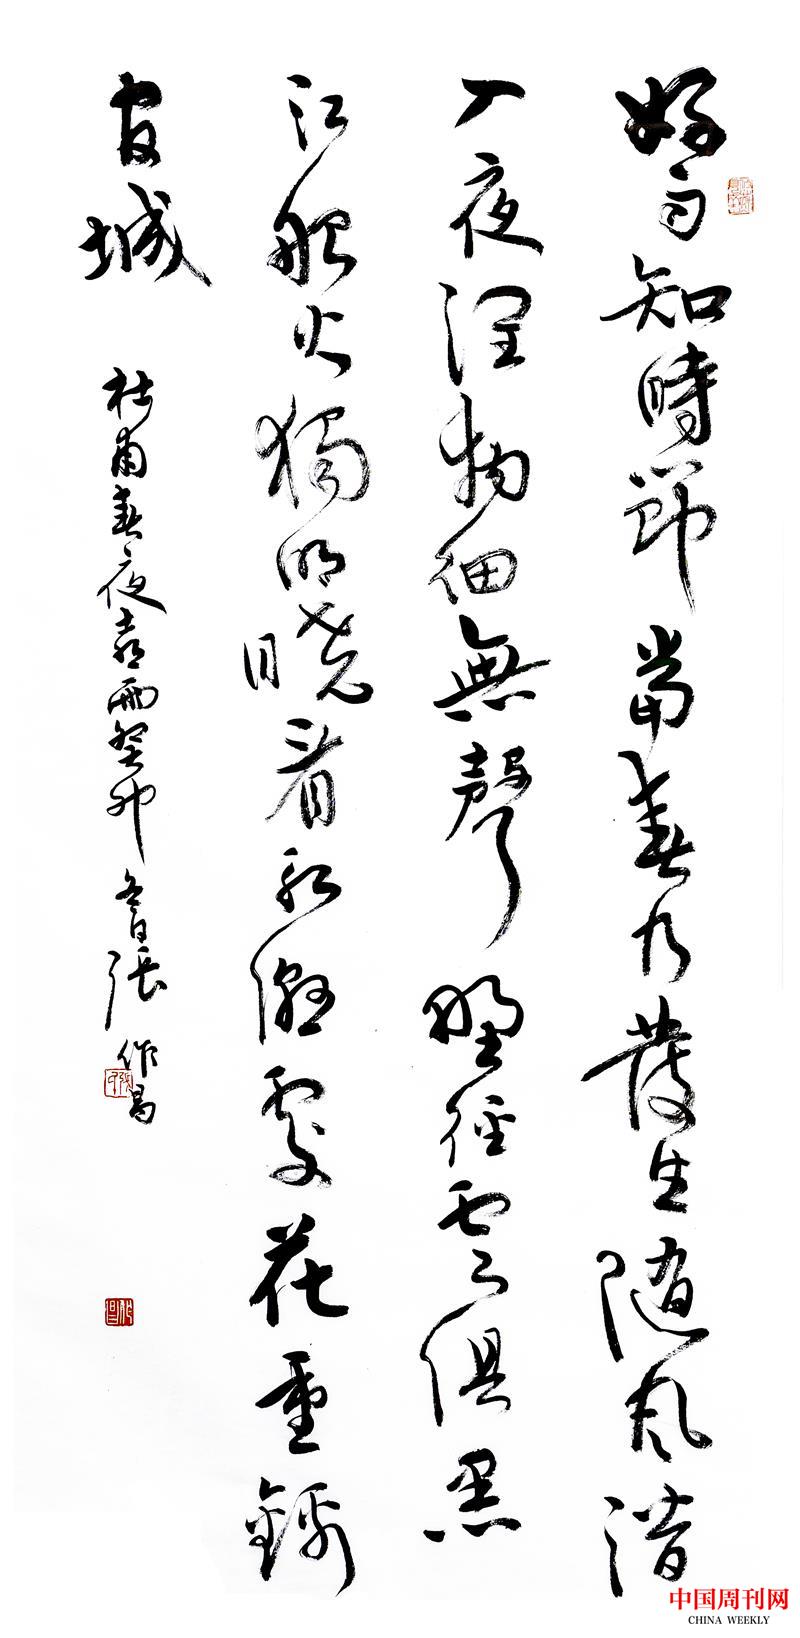 好雨知時節當春乃發生随風潜
入夜潤物細無聲野徑雲俱黑
江船火獨明曉看紅濕處花重錦
官城
杜甫春夜喜雨癸卯冬日張作昌
中国周刊网
CHINA WEEKLY